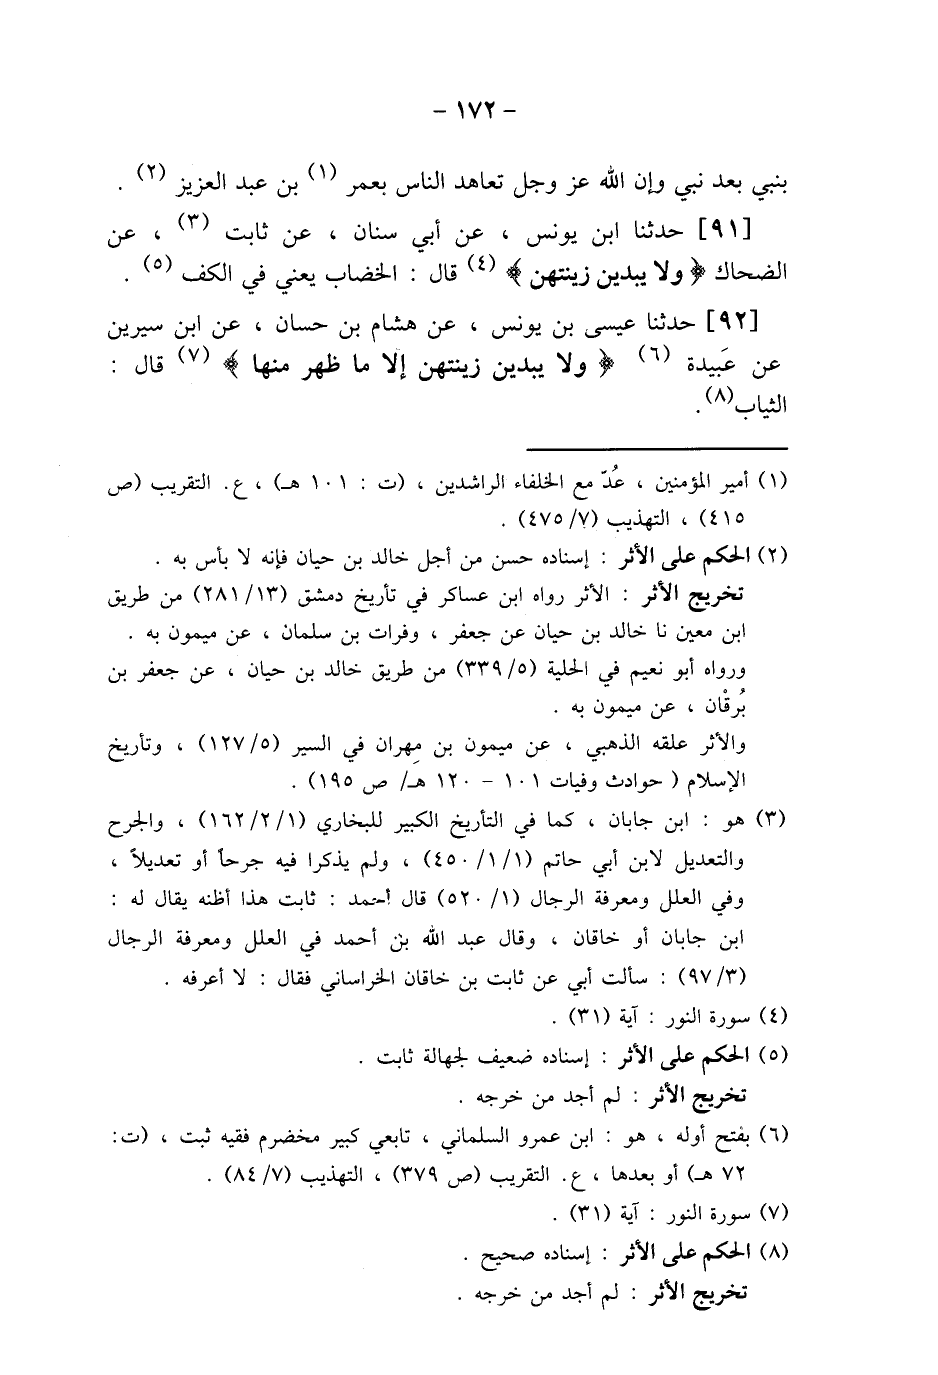 - ١٧٢ -
بنبي بعد نبي وإن الله عز وجل تعاهد الناس بعمر (١) بن عبد العزيز (٢) .
[٩١] حدثنا ابن يونس ، عن أبي سنان ، عن ثابت (٣) ، عن
الضحاك ﴿ ولا يبدين زينتهن ﴾ (٤) قال : الخضاب يعني في الكف (٥) .
[٩٢] حدثنا عيسى بن يونس ، عن هشام بن حسان ، عن ابن سيرين
عن عَبيدة (٦) ﴿ ولا يبدين زينتهن إلا ما ظهر منها ﴾ (٧) قال :
الثياب(٨).
(١) أمير المؤمنين ، عُدّ مع الخلفاء الراشدين ، (ت : ١٠١ هـ) ، ع. التقريب (ص
٤١٥) ، التهذيب (٤٧٥/٧) .
(٢) الحكم على الأثر : إسناده حسن من أجل خالد بن حيان فإنه لا بأس به .
تخريج الأثر : الأثر رواه ابن عساكر في تأريخ دمشق (٢٨١/١٣) من طريق
ابن معين نا خالد بن حيان عن جعفر ، وفرات بن سلمان ، عن ميمون به .
ورواه أبو نعيم في الحلية (٣٣٩/٥) من طريق خالد بن حيان ، عن جعفر بن
بُرقْان ، عن ميمون به .
والأثر علقه الذهبي ، عن ميمون بن مِهران في السير (١٢٧/٥) ، وتأريخ
الإسلام ( حوادث وفيات ١٠١ - ١٢٠ هـ/ ص ١٩٥) .
(٣) هو : ابن جابان ، كما في التأريخ الكبير للبخاري (١٦٢/٢/١) ، والجرح
والتعديل لابن أبي حاتم (٤٥٠/١/١) ، ولم يذكرا فيه جرحاً أو تعديلاً ،
وفي العلل ومعرفة الرجال (٥٢٠/١) قال أحمد : ثابت هذا أظنه يقال له :
ابن جابان أو خاقان ، وقال عبد الله بن أحمد في العلل ومعرفة الرجال
(٩٧/٣) : سألت أبي عن ثابت بن خاقان الخراساني فقال : لا أعرفه .
(٤) سورة النور : آية (٣١) .
(٥) الحكم على الأثر : إسناده ضعيف لجهالة ثابت .
تخريج الأثر : لم أجد من خرجه .
(٦) بفتح أوله ، هو : ابن عمرو السلماني ، تابعي كبير مخضرم فقيه ثبت ، (ت:
٧٢ هـ) أو بعدها ، ع. التقريب (ص ٣٧٩) ، التهذيب (٨٤/٧) .
(٧) سورة النور : آية (٣١) .
(٨) الحكم على الأثر : إسناده صحيح .
تخريج الأثر : لم أجد من خرجه .